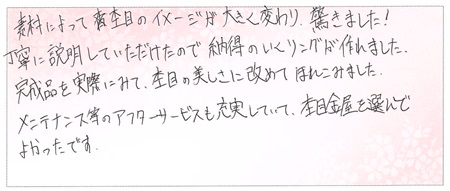 素材によって杢目のイメージが大きく変わり、驚きました!
丁寧に説明していただけたので納得のいくリングが作れました。
完成品を実際にみて、杢目の美しさに改めてほれこみました。
メンテナンス等のアフターサービスも充実していて、杢目金屋を選んで
よかったです。